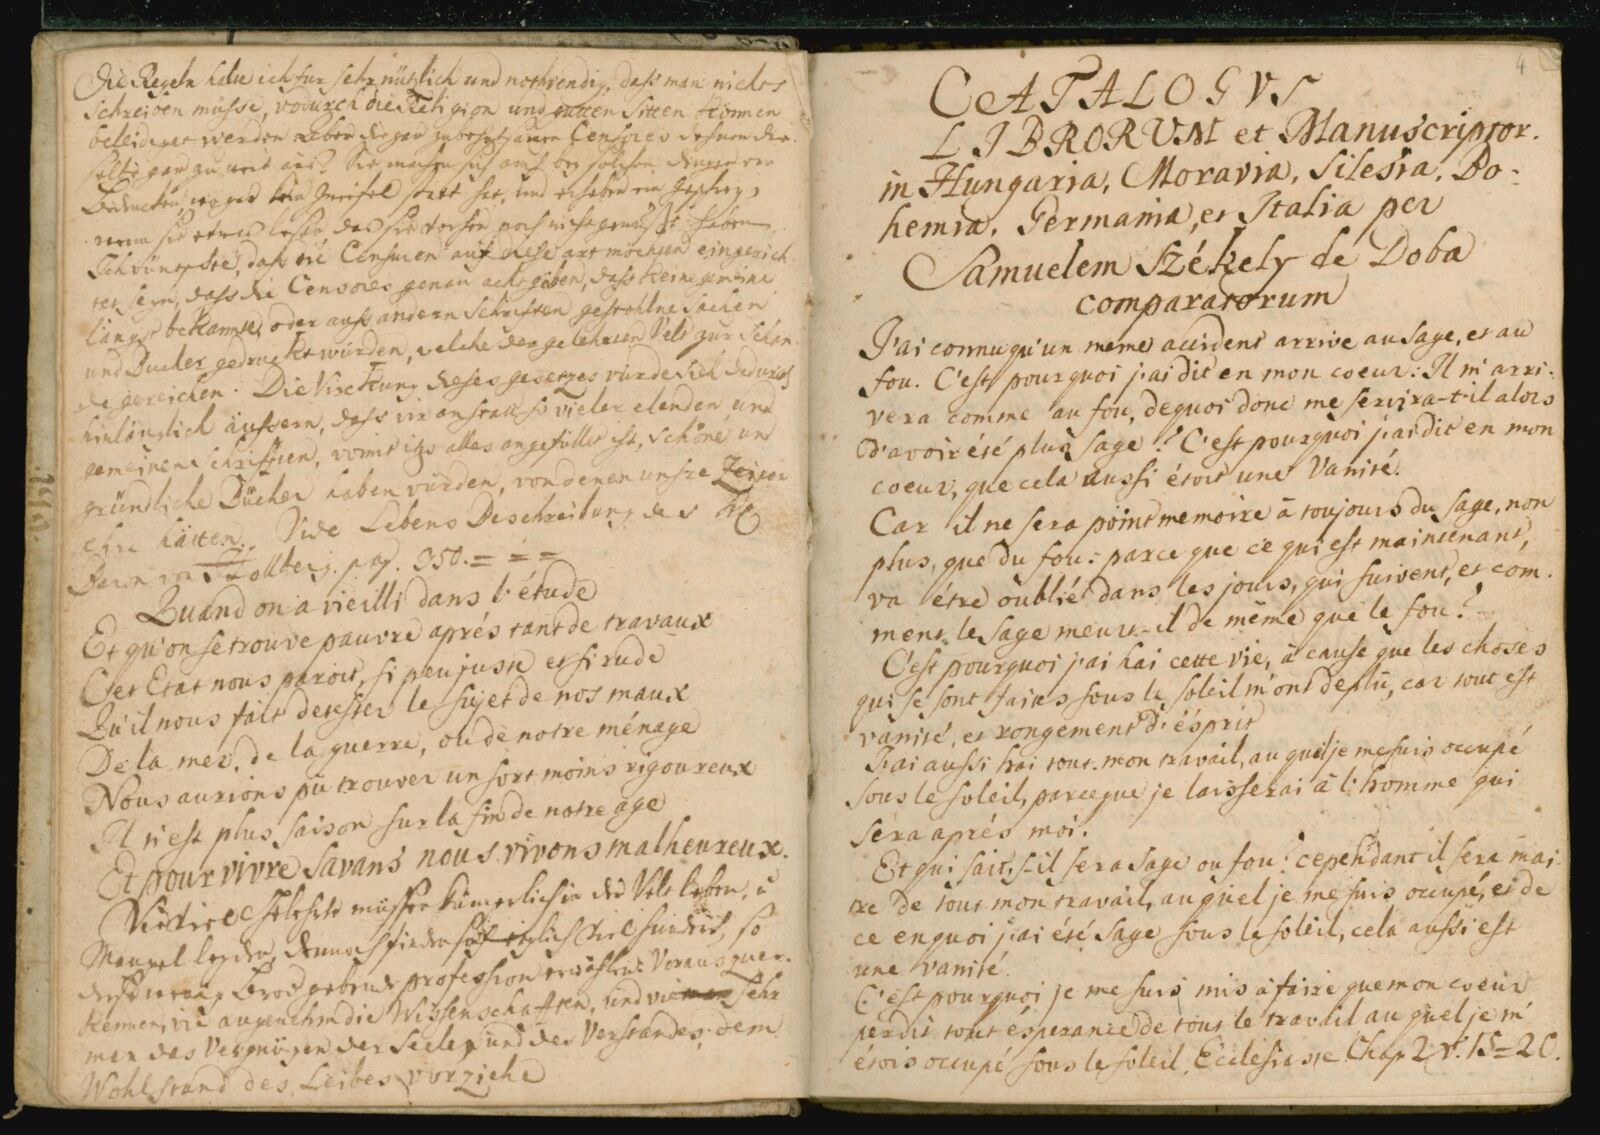 Die Regeln halte ich fur sehr nützlich und nothvendig, dass man nichts
schreiben müsse, vodurch die Religion und guten Sitten können
beleidiget werden. Aber die gar zu Censores dehnen die-
selbe gar zu weit aus? Sie machen sich auch bey solchen dingen ein
Bedencken, wo gar kein Zweifel statt hat, und erheben ein geschrey,
wenn sie etwas lesen, das sie vorher noch nicht gewusst haben.
Ich vünschte, dass die Censuren auf diese art möchten eingerich-
tet seyn, dass die Censores genau acht geben, dass keine gemeine
längst bekannte, oder auss andern schriften gestohlne sachen
und Bucher gedruckt würden, velche der gelehrten Velt zur schan-
de gereichen. Die Virckung dieses gesetzes vürde sich dadurch
hinlänglich äussern, dass vir anstatt so vieler elenden und
gemeinen schrifften, vomit itzo alles angefüllet ist, schöne und
gründliche Bücher haben vürden, von denen unsre Zeiten
Ehre hätten. Vide Lebens Beschreibung des H
Baron von Hollberg. pag. 350. = = =
Quand on a vieilli dans l'étude
Et qu'on se trouve pauvre aprés tant de travaux
Cet Etat nous paroit, si peu juste et si rude
Qu'il nous fait detester le sujet de nos maux
De la mer, de la guerre, ou de notre ménage
Nous aurions pû trouver un sort moins rigoureux
Il n'est plus saison sur la fin de notre age
Et pour vivre savans nous vivons malheureux.
Vie viele Gelehrte müssen kümerlich in der Velt leben, u
Mangel leyden, dennoch finden sich täglich viel hundert, so
diese wenig Brod gebende profession erwöhlen. Voraus zu er-
kennen, vie angenehm die Wissenschafften, und vie sehr
man das Vergnügen der Seelen und des Verstandes, dem
Wohlstand des Leibes vorziehe
4
CATALOGVS
LIBRORVM et Manuscriptor.
in Hungaria, Moravia, Silesia, Bo-
hemia, Germania, et Italia per
Samuelem Székely de Doba
comparatorum
J'ai connu qu'un meme accident arrive au sage, et au
fou. C'est pourquoi j'ai dit en mon coeur: Il m'arri-
vera comme au fou, dequoi donc me servira-t-il alors
d'avoir été plus sage? C'est pourquoi j'ai dit en mon
coeur, que cela aussi étoit une Vanité.
Car il ne sera point memoire à toujours du sage, non
plus, que du fou: parce que ce qui est maintenant,
va étre oublié dans les jours, qui suivent, et com-
ment le sage meurt-il de méme que le fou?
C'est pourquoi j'ai hai cette vie, à cause que les choses
qui se sont faites sous le soleil m'ont deplû, car tout est
vanité, et rongement d'ésprit
J'ai aussi hai tout mon travail, au quel je me suis occupé
sous le soleil, parceque je laisserai à l'homme qui
sera aprés moi.
Et qui sait, s-il sera sage ou fou? cependant il sera mai-
tre de tout mon travail, au quel je me suis occupé, et de
ce en quoi j'ai été sage sous le soleil, cela aussi est
une vanité.
C'est pourquoi je me suis mis à faire que mon coeur
perdit tout ésperance de tout le travail au quel je m'
étois occupé sous le soleil. Ecclesiaste Chap 2 v. 15=20.